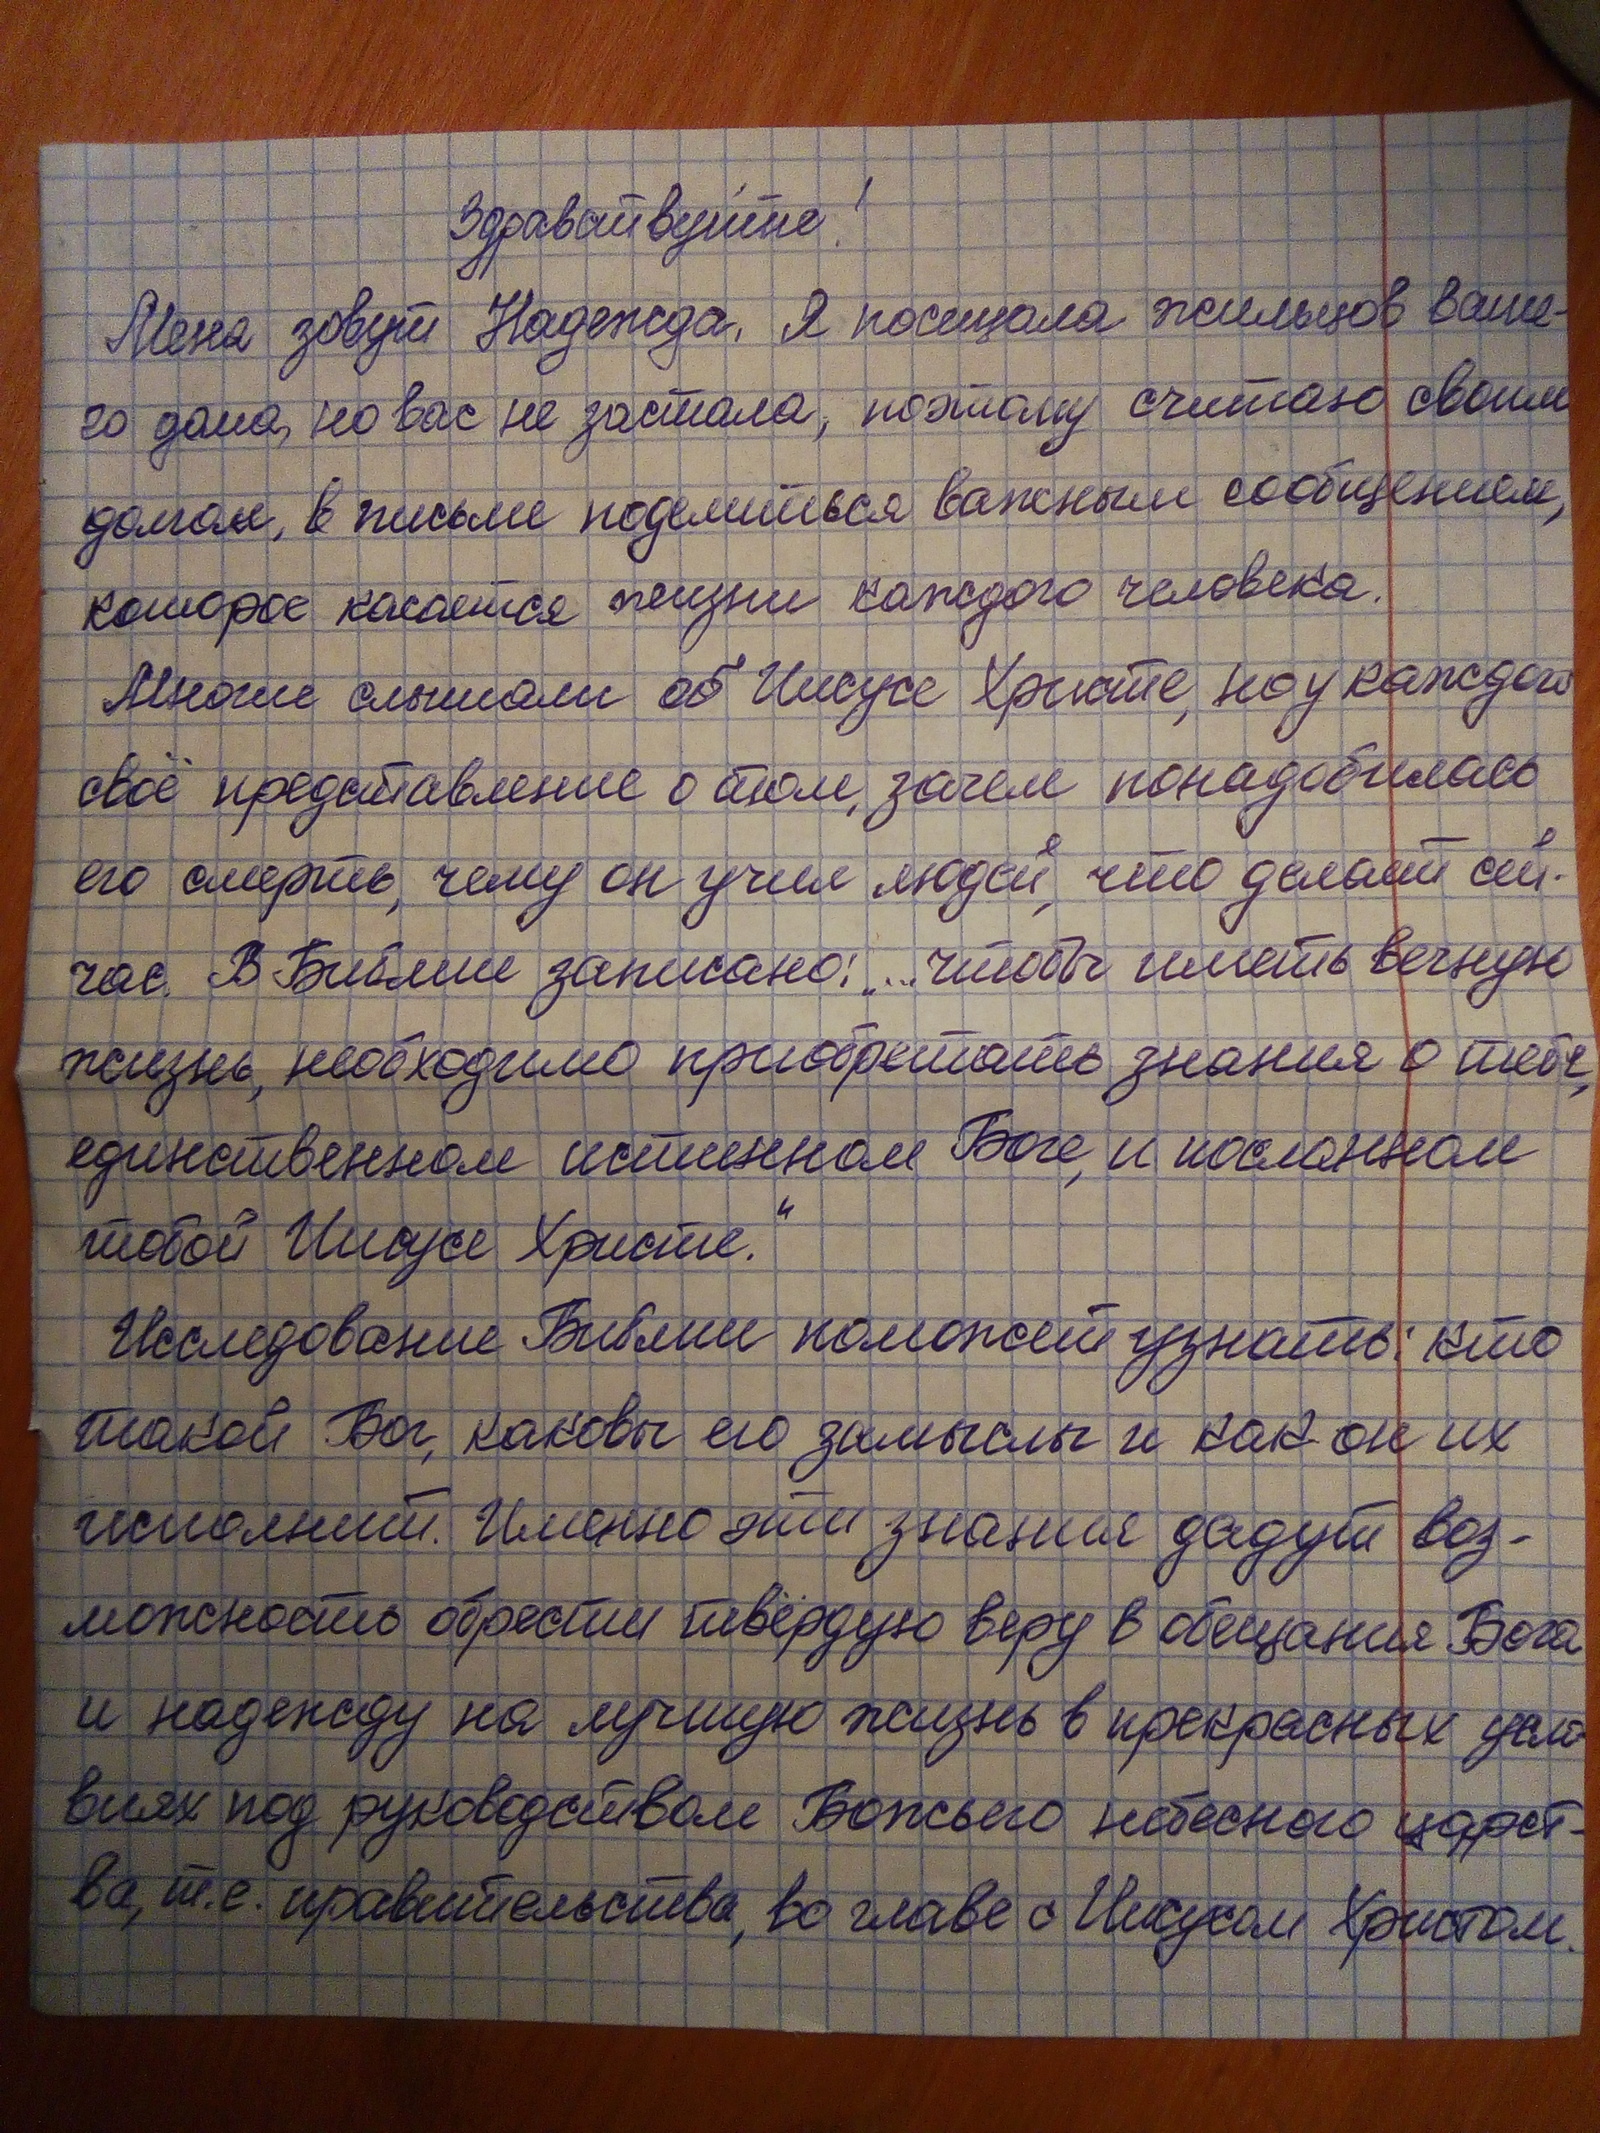 Здравствуйте!
Меня зовут Надежда. Я посещала жильцов ваше-
го дома, но вас не застала, поэтому считаю своим
долгом, в письме поделиться важным сообщением,
которое касается жизни каждого человека.
Многие слышали об Иисусе Христе, но у каждого
своё представление о том, зачем понадобилась
его смерть, чему он учил людей, что делает сей-
час. В Библии записано: „...чтобы иметь вечную
жизнь, необходимо приобретать знания о тебе,
единственном истинном Боге, и посланном
тобой Иисусе Христе.“
Исследование Библии поможет узнать: кто
такой Бог, каковы его замыслы и как он их
исполнит. Именно эти знания дадут воз-
можность обрести твёрдую веру в обещания Бога
и надежду на лучшую жизнь в прекрасных усло-
виях под руководством Божьего небесного царст-
ва, т.е. правительства, во главе с Иисусом Христом.